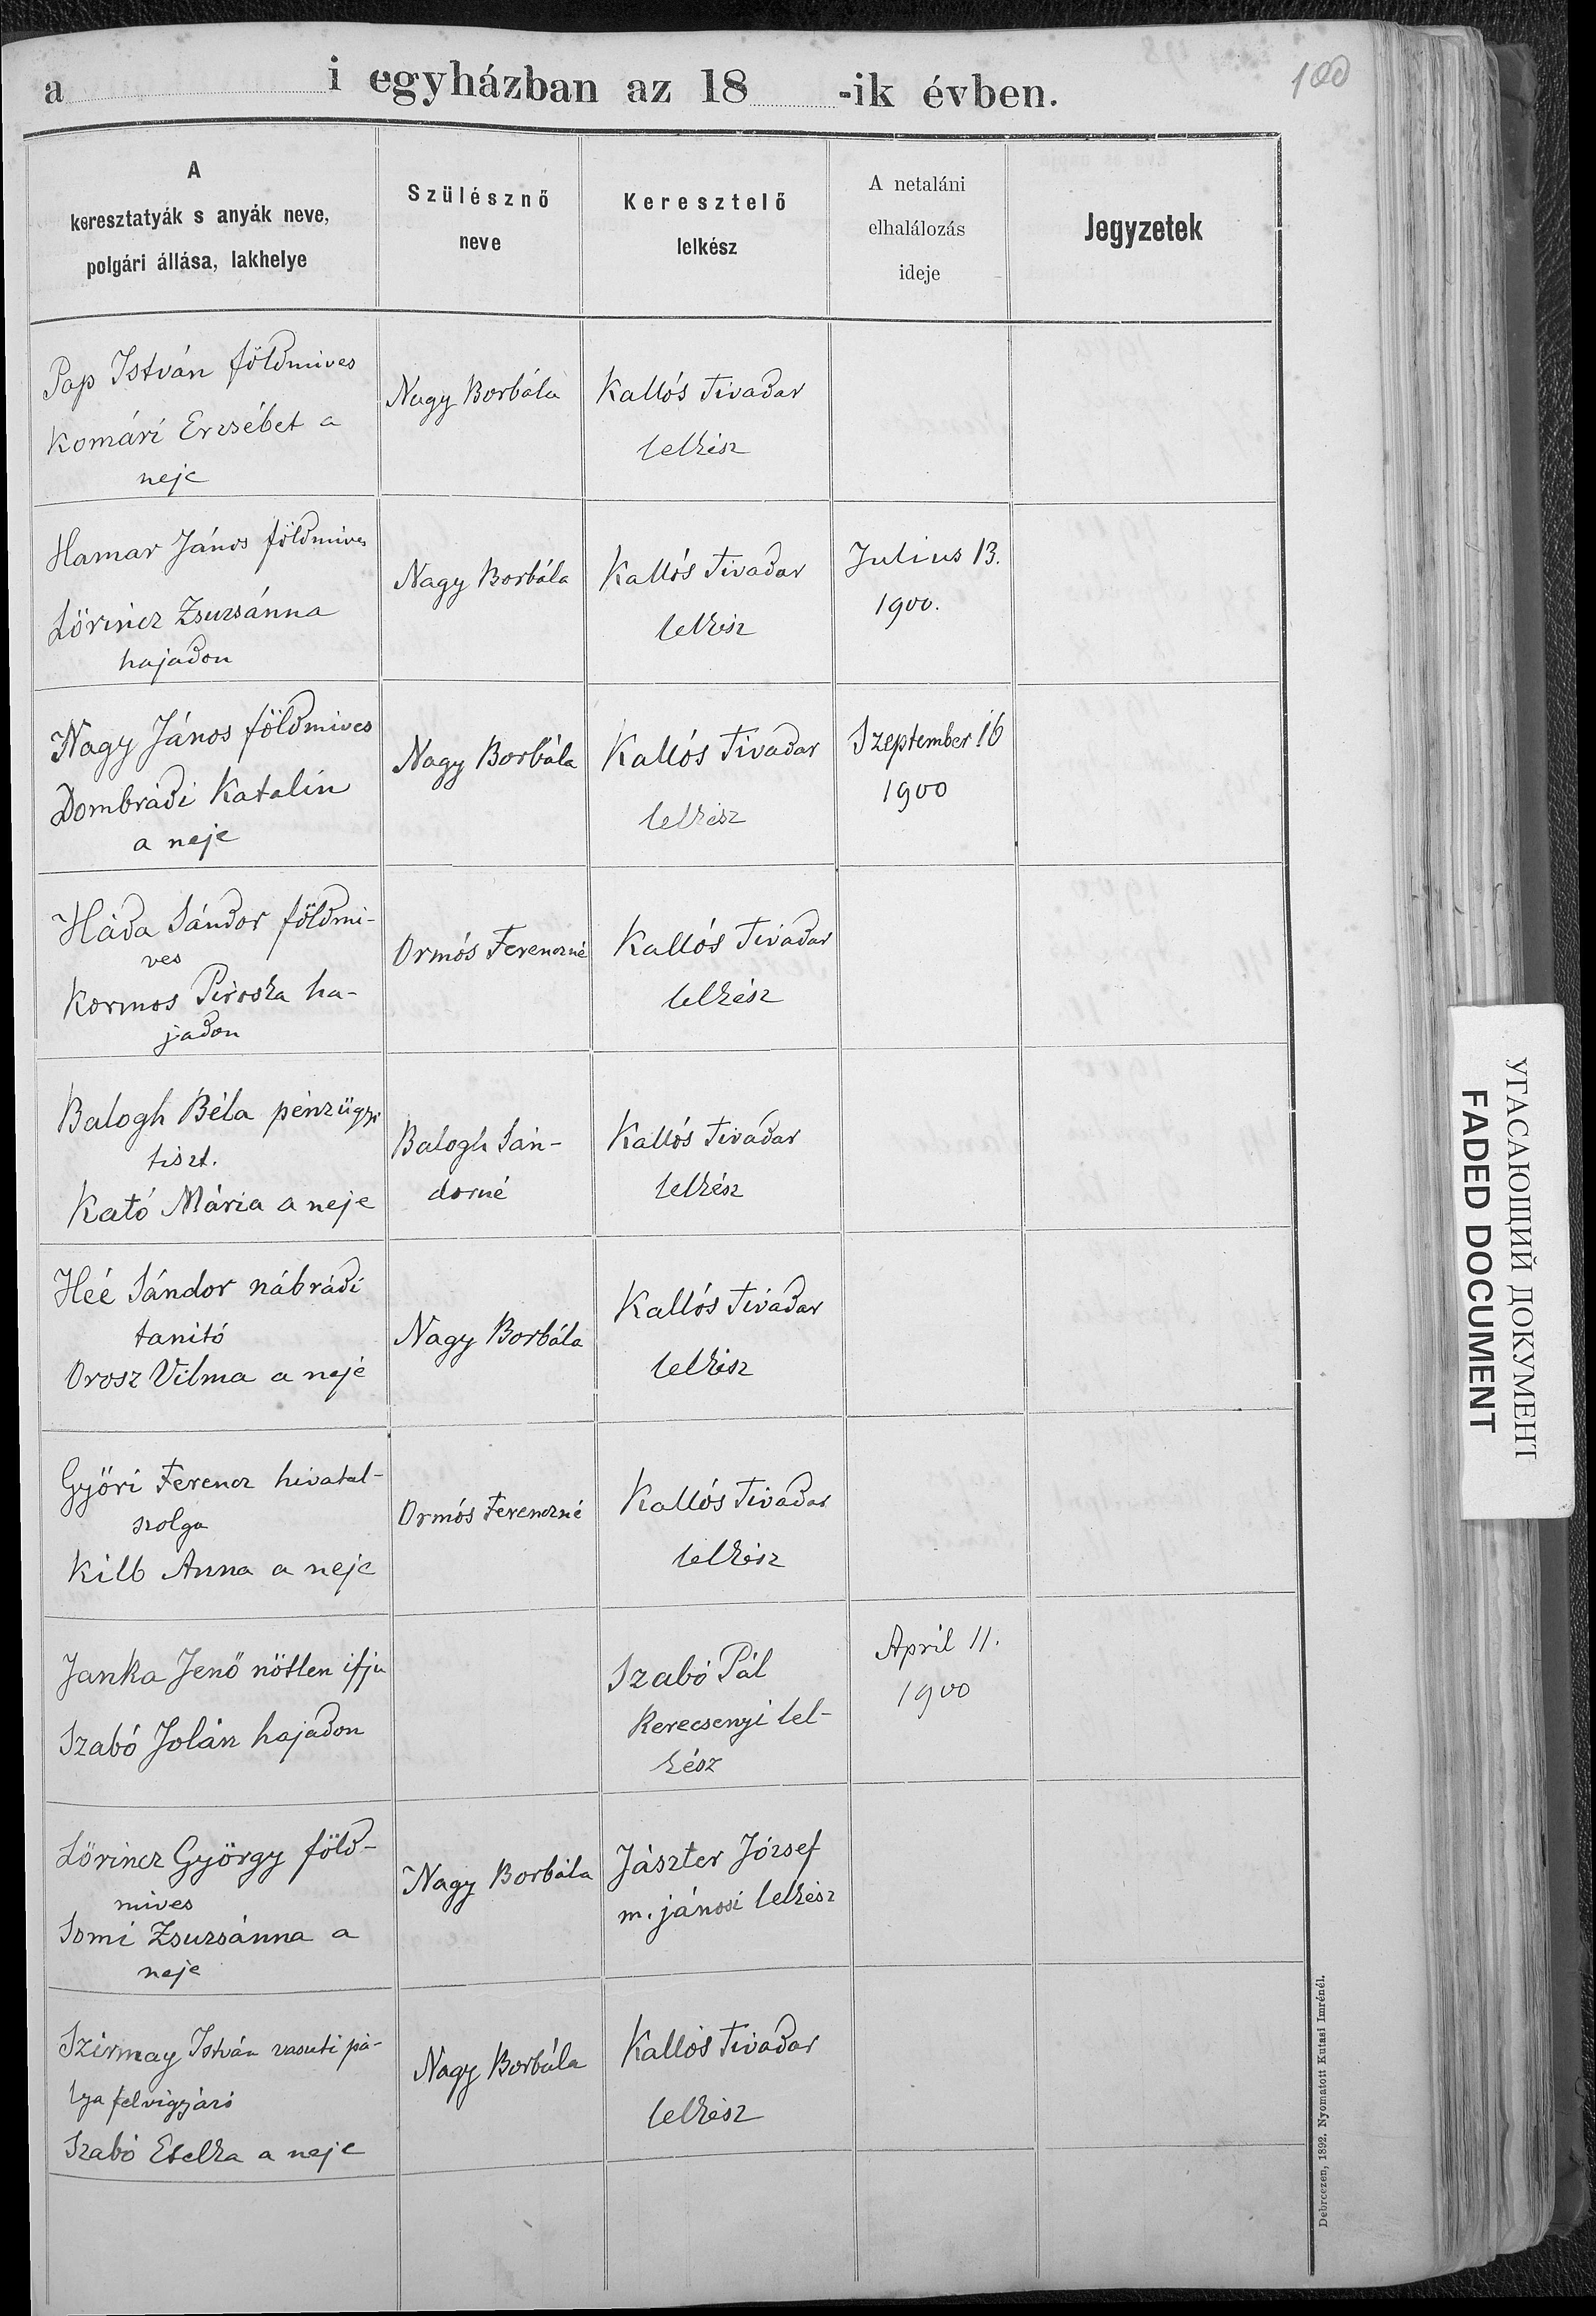 a i egyházban az 18 -ik évben.
100
A
keresztatyák s anyák neve,
polgári állása, lakhelye
Szülésznő
neve
Keresztelő
lelkész
A netaláni
elhalálozás
ideje
Jegyzetek
Pap István földmives
Komári Erzsébet a
neje
Nagy Borbála
Kallós Tivadar
lelkész
Hamar János földmives
Lörincz Zsuzsánna
hajadon
Nagy Borbála
Kallós Tivadar
lelkész
Julius 13.
1900.
Nagy János földmives
Dombrádi Katalin
a neje
Nagy Borbála
Kallós Tivadar
lelkész
Szeptember 16
1900
Háda Sándor földmi-
ves
Kormos Piroska ha-
jadon
Ormós Ferenczné
Kallós Tivadar
lelkész
Balogh Béla pénzügyi
tiszt.
Kató Mária a neje
Balogh Sán-
dorné
Kallós Tivadar
lelkész
Heé Sándor nábrádi
tanitó
Orosz Vilma a neje
Nagy Borbála
Kallós Tivadar
lelkész
Győri Ferencz hivatal-
szolga
Kilb Anna a neje
Ormós Ferenczné
Kallós Tivadar
lelkész
Janka Jenő nőtlen ifju
Szabó Jolán hajadon
Szabó Pál
kerecsenyi lel-
kész
April 11.
1900
Lörincz György föld-
mives
Somi Zsuzsánna a
neje
Nagy Borbála
Jászter József
m. jánosi lelkész
Szirmay István vasuti pá-
lya felvigyázó
Szabó Etelka a neje
Nagy Borbála
Kallós Tivadar
lelkész
Debreczen, 1892. Nyomatott Kutasi Imrénél.
УГАСАЮЩИЙ ДОКУМЕНТ
FADED DOCUMENT